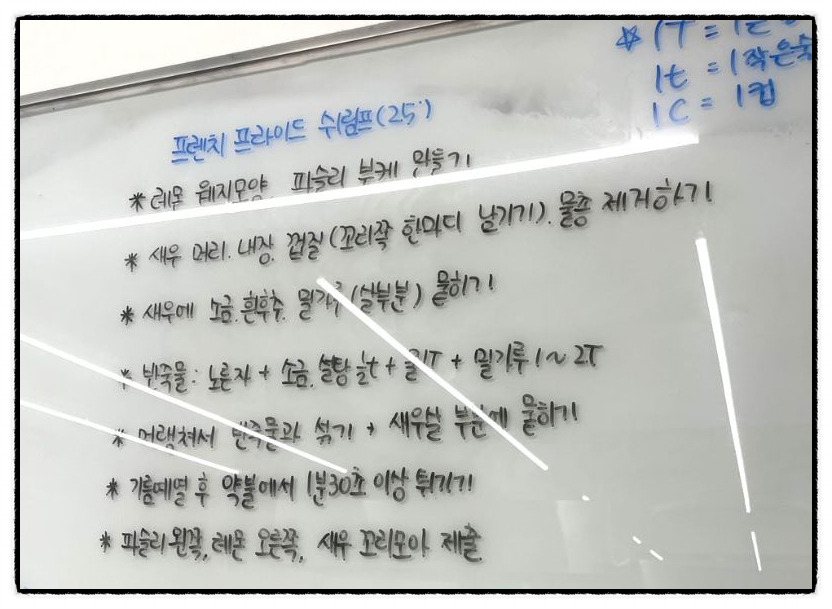 ☆ 1T = 1큰
1t = 1작은숟
1C = 1컵
프렌치 프라이드 쉬림프(25')
* 레몬 웨지모양, 파슬리 부케 만들기
* 새우 머리. 내장. 껍질(꼬리쪽 한마디 남기기). 물총 제거하기
* 새우에 소금.흰후추. 밀가루(살부분) 뭍히기
* 반죽물: 노른자 + 소금. 설탕 ½t + 물1T + 밀가루 1~2T
* 머랭쳐서 반죽물과 섞기 → 새우살 부분에 뭍히기
* 기름예열 후 약불에서 1분30초 이상 튀기기
* 파슬리왼쪽, 레몬 오른쪽, 새우 꼬리모아 제출